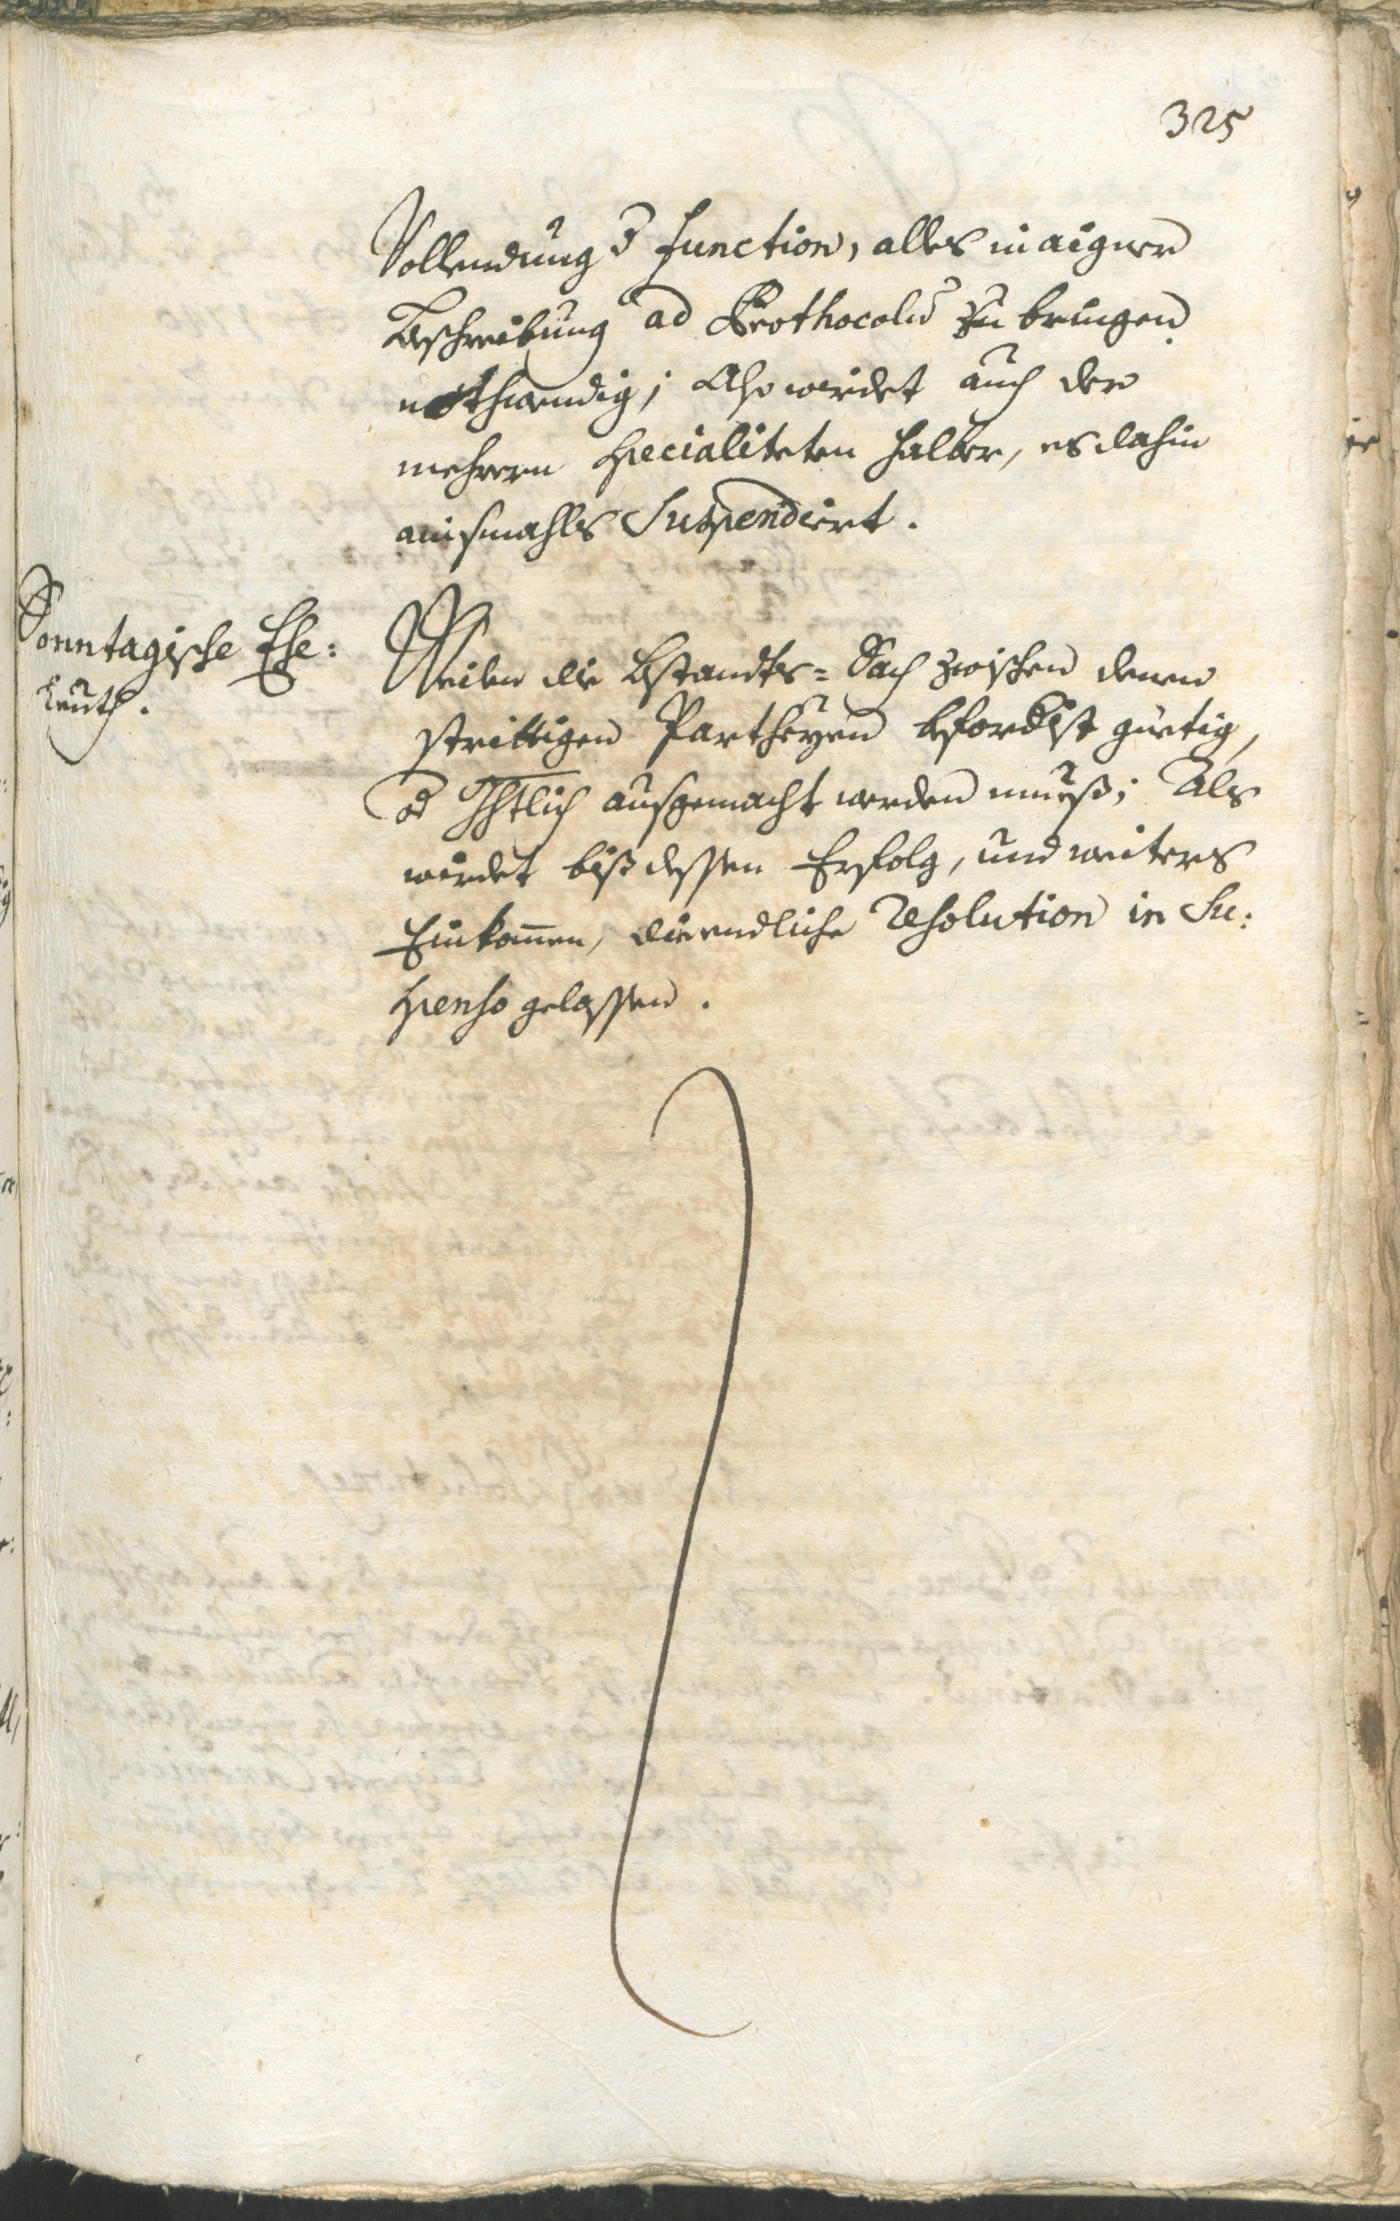 325
Vollendung d Function, alles in aigner
Beschreibung ad Prothocolu zu bringen
nothwendig; Also wirdet auch der
mehrern Specialiteten halber, es dahin
aufsmahls Suspendiert.
Sonntagische Ehe:
leuth.
Weilen die Bstandts= Sach zwischen denen
strittigen Partheyen befordist güetig,
od Ghtlich ausgemacht werden mueß; Als
wirdet biß dessen Erfolg, und weiters
Einkomen, die endliche Resolution in Su:
spenso gelassen.